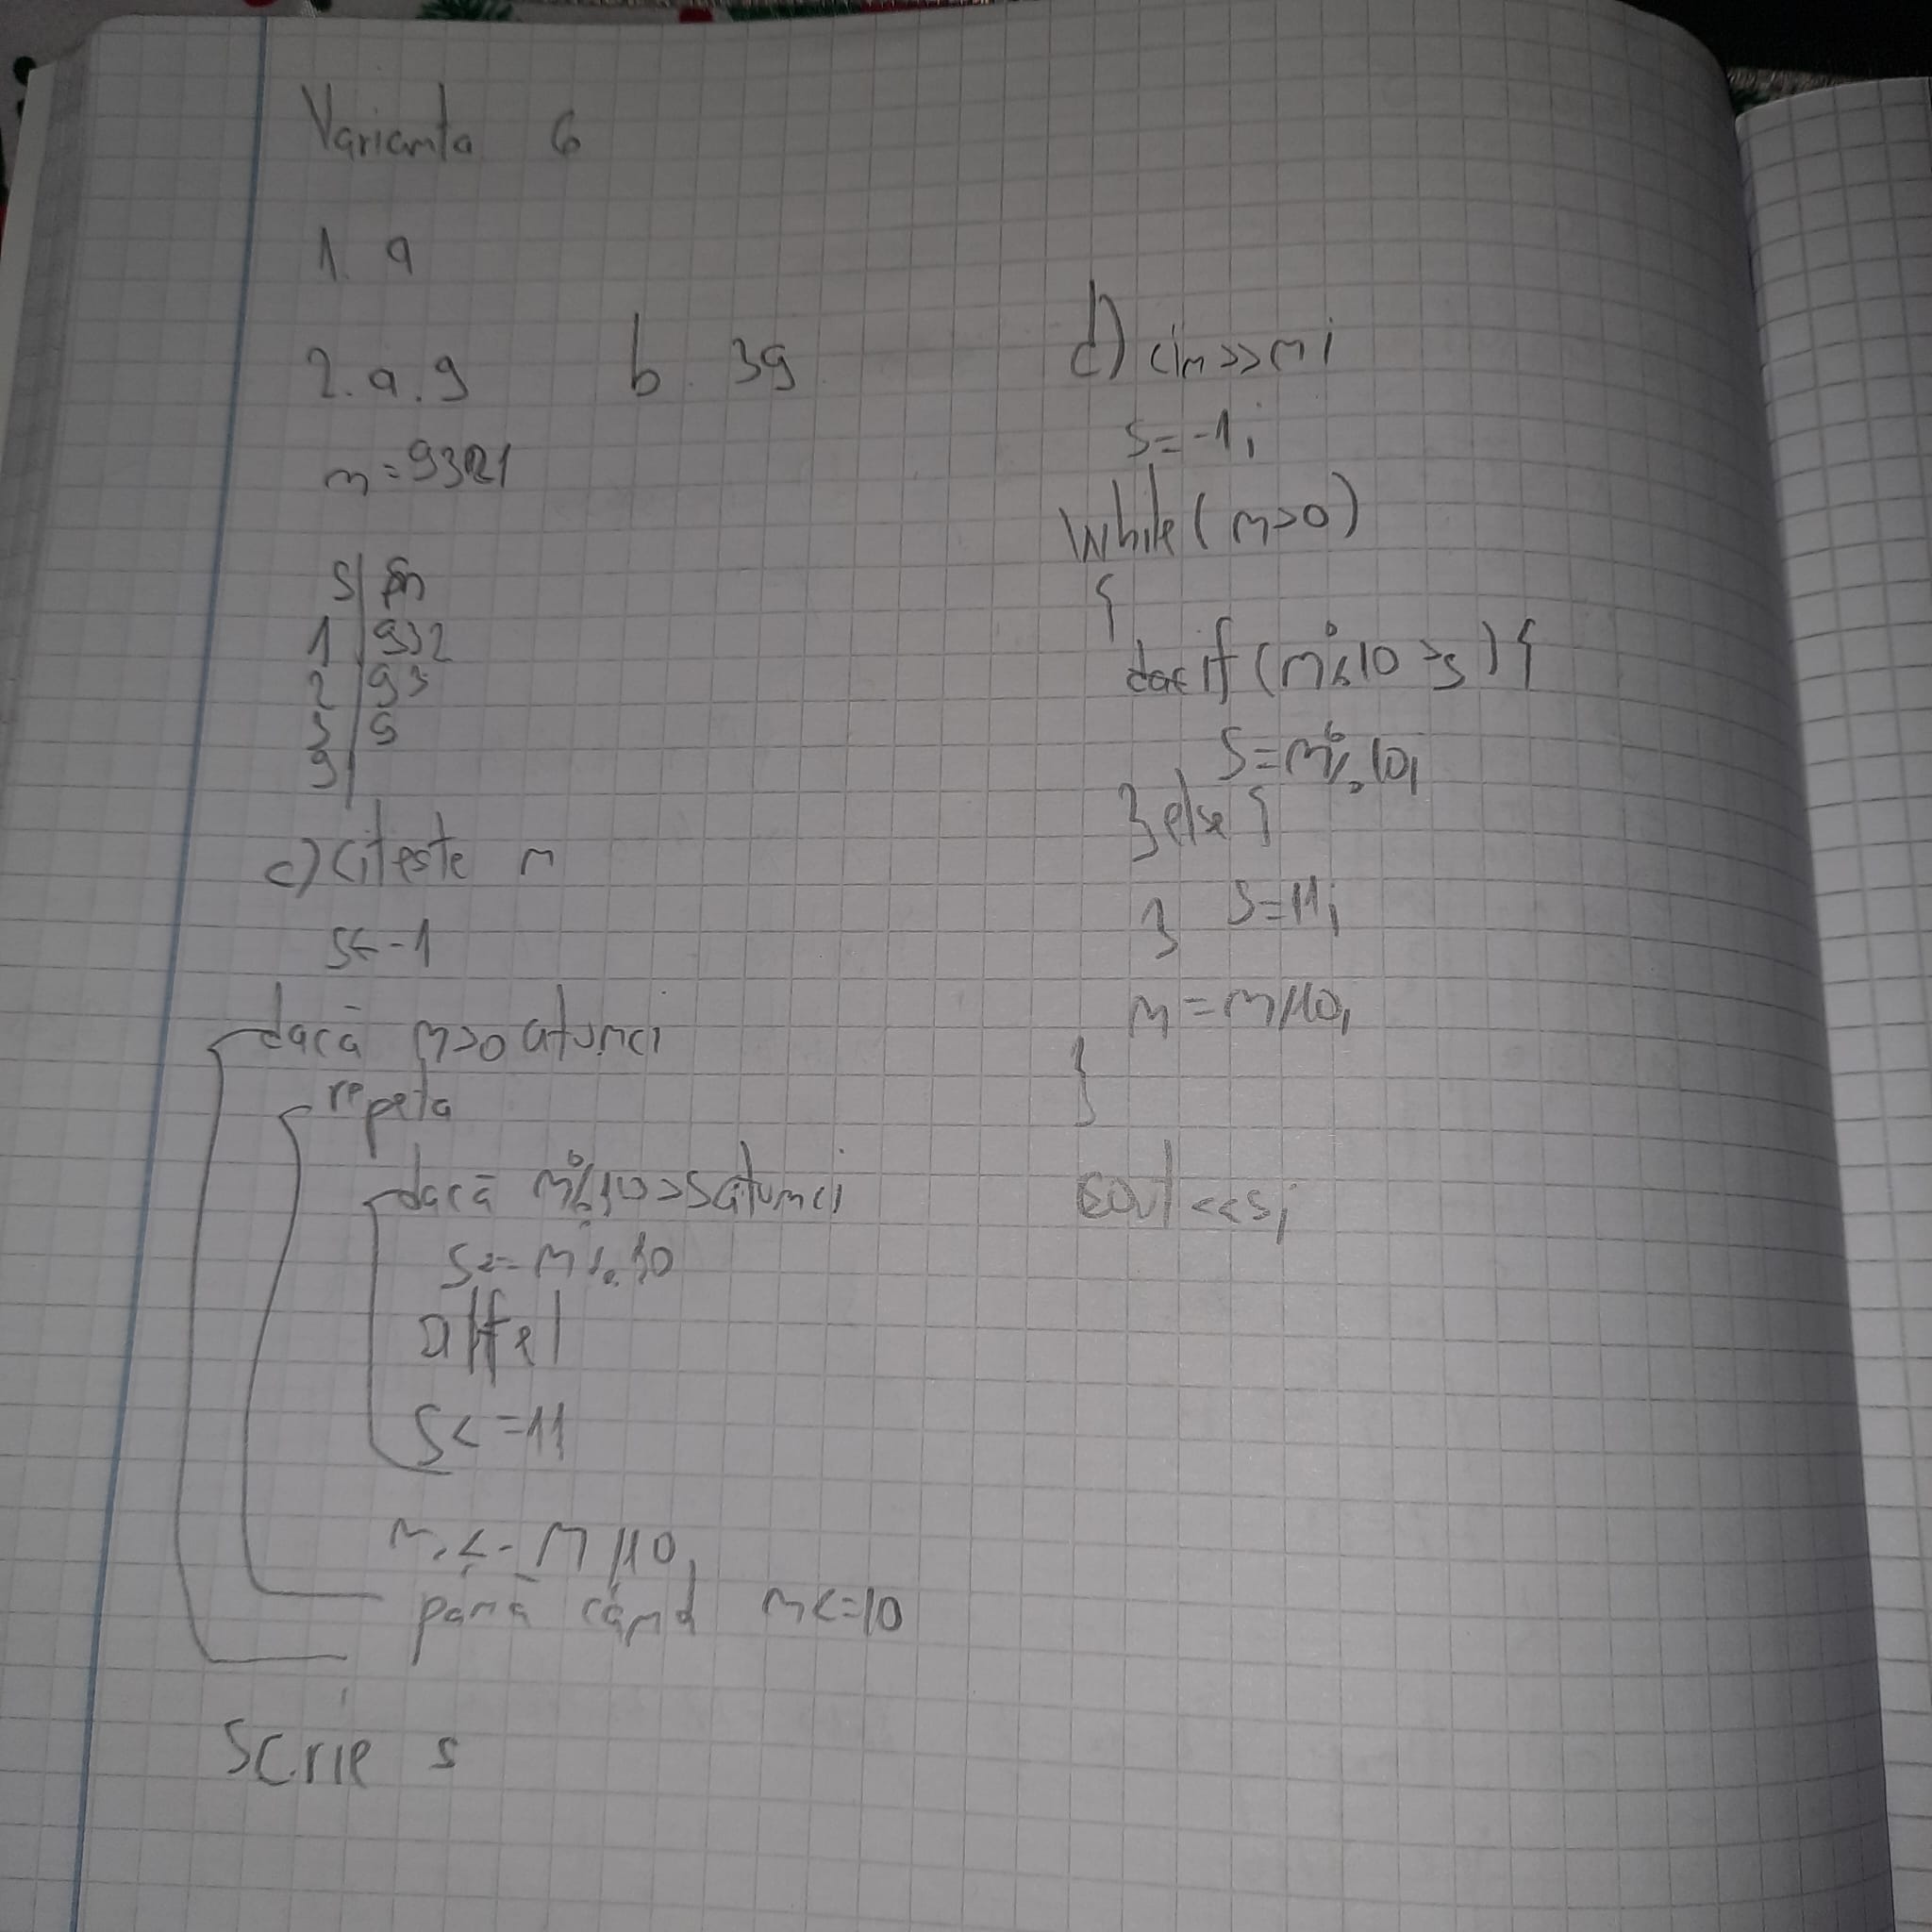 Varianta 6
1. a
2. a. 9
b. 39
n=9321
s| n
1|932
2|93
3|9
9|
c) Citeste n
s<-1
dacă n>0 atunci
repeta
dacă n%10>s atunci
s<-n%10
altfel
s<-11
n<-n/10
până când n<=10
Scrie s
d) cin>>n;
s=-1;
while(n>0)
{
if(n%10>s){
s=n%10;
}else{
s=11;
}
n=n/10;
}
cout<<s;